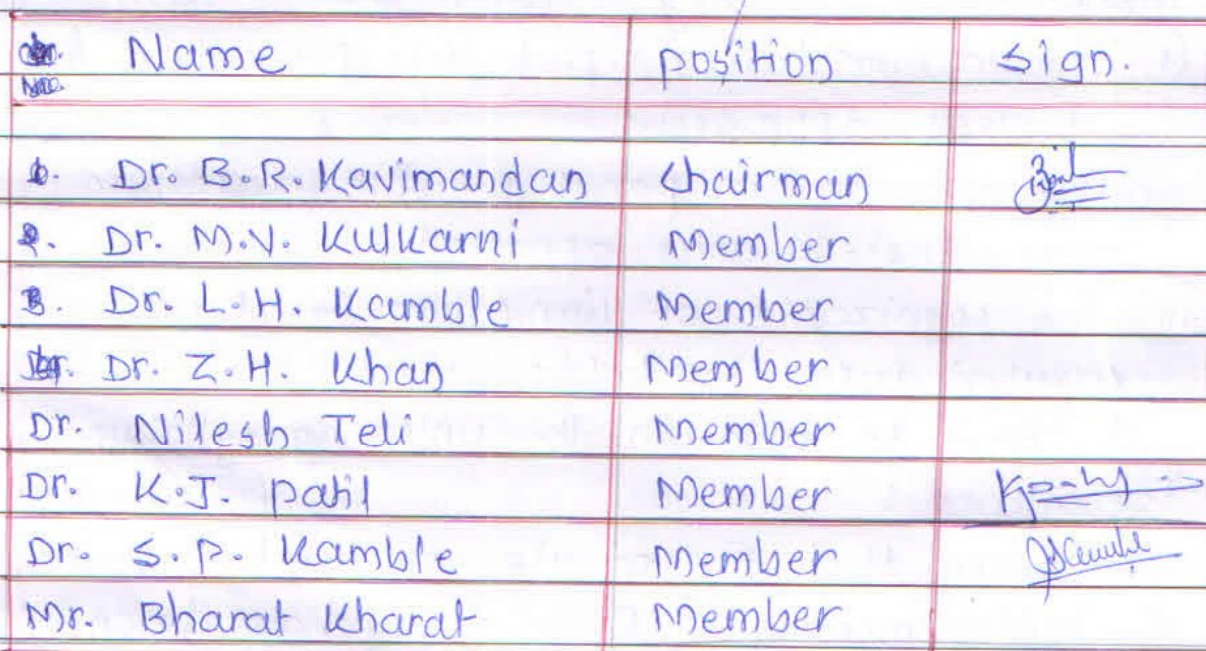 Name position sign.
Dr. B.R. Kavimandan chairman
Dr. M.V. Kulkarni Member
Dr. L.H. Kamble Member
Dr. Z.H. Khan Member
Dr. Nilesh Teli Member
Dr. K.J. patil Member
Dr. S.P. Kamble Member
Mr. Bharat Kharat Member